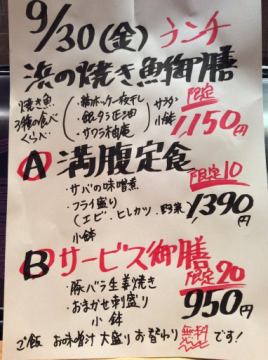 9/30(金) ランチ
浜の焼き魚御膳
焼き魚
3種の食べ
くらべ
・縞ホッケ一夜干し
・銀ダラ正油
・サワラ柚庵
サラダ
小鉢
限定
1,150円
A 満腹定食
限定10
・サバの味噌煮
・フライ盛り
(エビ、ヒレカツ、野菜)
小鉢
1390円
B サービス御膳
限定20
・豚バラ生姜焼き
・おまかせ刺盛り
小鉢
950円
ご飯 お味噌汁 大盛り お替わり 無料です!